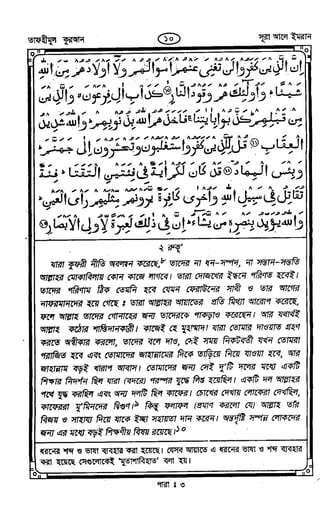 তাফহীমুল কুরআন
১০
সূরা আলে ইমরান
إِنَّ الَّذِينَ كَفَرُوا لَنْ تُغْنِيَ عَنْهُمْ أَمْوَالُهُمْ وَلَا أَوْلَادُهُمْ مِنَ اللَّهِ
شَيْئًا وَأُولَٰئِكَ هُمْ وَقُودُ النَّارِ كَدَأْبِ آلِ فِرْعَوْنَ وَالَّذِينَ
مِنْ قَبْلِهِمْ كَذَّبُوا بِآيَاتِنَا فَأَخَذَهُمُ اللَّهُ بِذُنُوبِهِمْ وَاللَّهُ شَدِيدُ
الْعِقَابِ قُلْ لِلَّذِينَ كَفَرُوا سَتُغْلَبُونَ وَتُحْشَرُونَ إِلَىٰ جَهَنَّمَ
وَبِئْسَ الْمِهَادُ قَدْ كَانَ لَكُمْ آيَةٌ فِي فِئَتَيْنِ الْتَقَتَا فِئَةٌ
تُقَاتِلُ فِي سَبِيلِ اللَّهِ وَأُخْرَىٰ كَافِرَةٌ يَرَوْنَهُمْ مِثْلَيْهِمْ رَأْيَ الْعَيْنِ
وَاللَّهُ يُؤَيِّدُ بِنَصْرِهِ مَنْ يَشَاءُ إِنَّ فِي ذَٰلِكَ لَعِبْرَةً لِأُولِي الْأَبْصَارِ
২ রুকূ'
যারা কুফরী নীতি অবলম্বন করেছে,৮ তাদের না ধন-সম্পদ, না সন্তান-সন্ততি
আল্লাহর মোকাবিলায় কোন কাজে লাগবে। তারা দোজখের ইন্ধনে পরিণত হবেই।
তাদের পরিণাম ঠিক তেমনি হবে যেমন ফেরাউনের সাথী ও তার আগের
নাফরমানদের হয়ে গেছে : তারা আল্লাহর আয়াতের প্রতি মিথ্যা আরোপ করেছে,
ফলে আল্লাহ তাদের গোনাহের জন্য তাদেরকে পাকড়াও করেছেন। আর যথার্থই
আল্লাহ কঠোর শাস্তিদানকারী। কাজেই হে মুহাম্মাদ! যারা তোমার দাওয়াত গ্রহণ
করতে অস্বীকার করলো, তাদের বলে দাও, সেই সময় নিকটবর্তী যখন তোমরা
পরাজিত হবে এবং তোমাদের জাহান্নামের দিকে তাড়িয়ে নিয়ে যাওয়া হবে, আর
জাহান্নাম বড়ই খারাপ আবাস। তোমাদের জন্য সেই দু'টি দলের মধ্যে একটি
শিক্ষার নিদর্শন ছিল যারা বদরে পরস্পর যুদ্ধে লিপ্ত হয়েছিল। একটি দল আল্লাহর
পথে যুদ্ধ করছিল এবং অন্য দলটি ছিল কাফের। চোখের দেখায় লোকেরা দেখছিল,
কাফেররা মু'মিনদের দ্বিগুণ।৯ কিন্তু ফলাফল (প্রমাণ করলো যে) আল্লাহ তাঁর
বিজয় ও সাহায্য দিয়ে যাকে ইচ্ছা সহায়তা দান করেন। অন্তর্দৃষ্টি সম্পন্ন লোকদের
জন্য এর মধ্যে বড়ই শিক্ষণীয় বিষয় রয়েছে।১০
ধরনের শব্দ ও ভাষা ব্যবহার করা হয়েছে। যেসব আয়াতে এ ধরনের ভাষা ও শব্দ ব্যবহার
করা হয়েছে সেগুলোকেই 'মুতাশাবিহাত' বলা হয়।
পারা : ৩